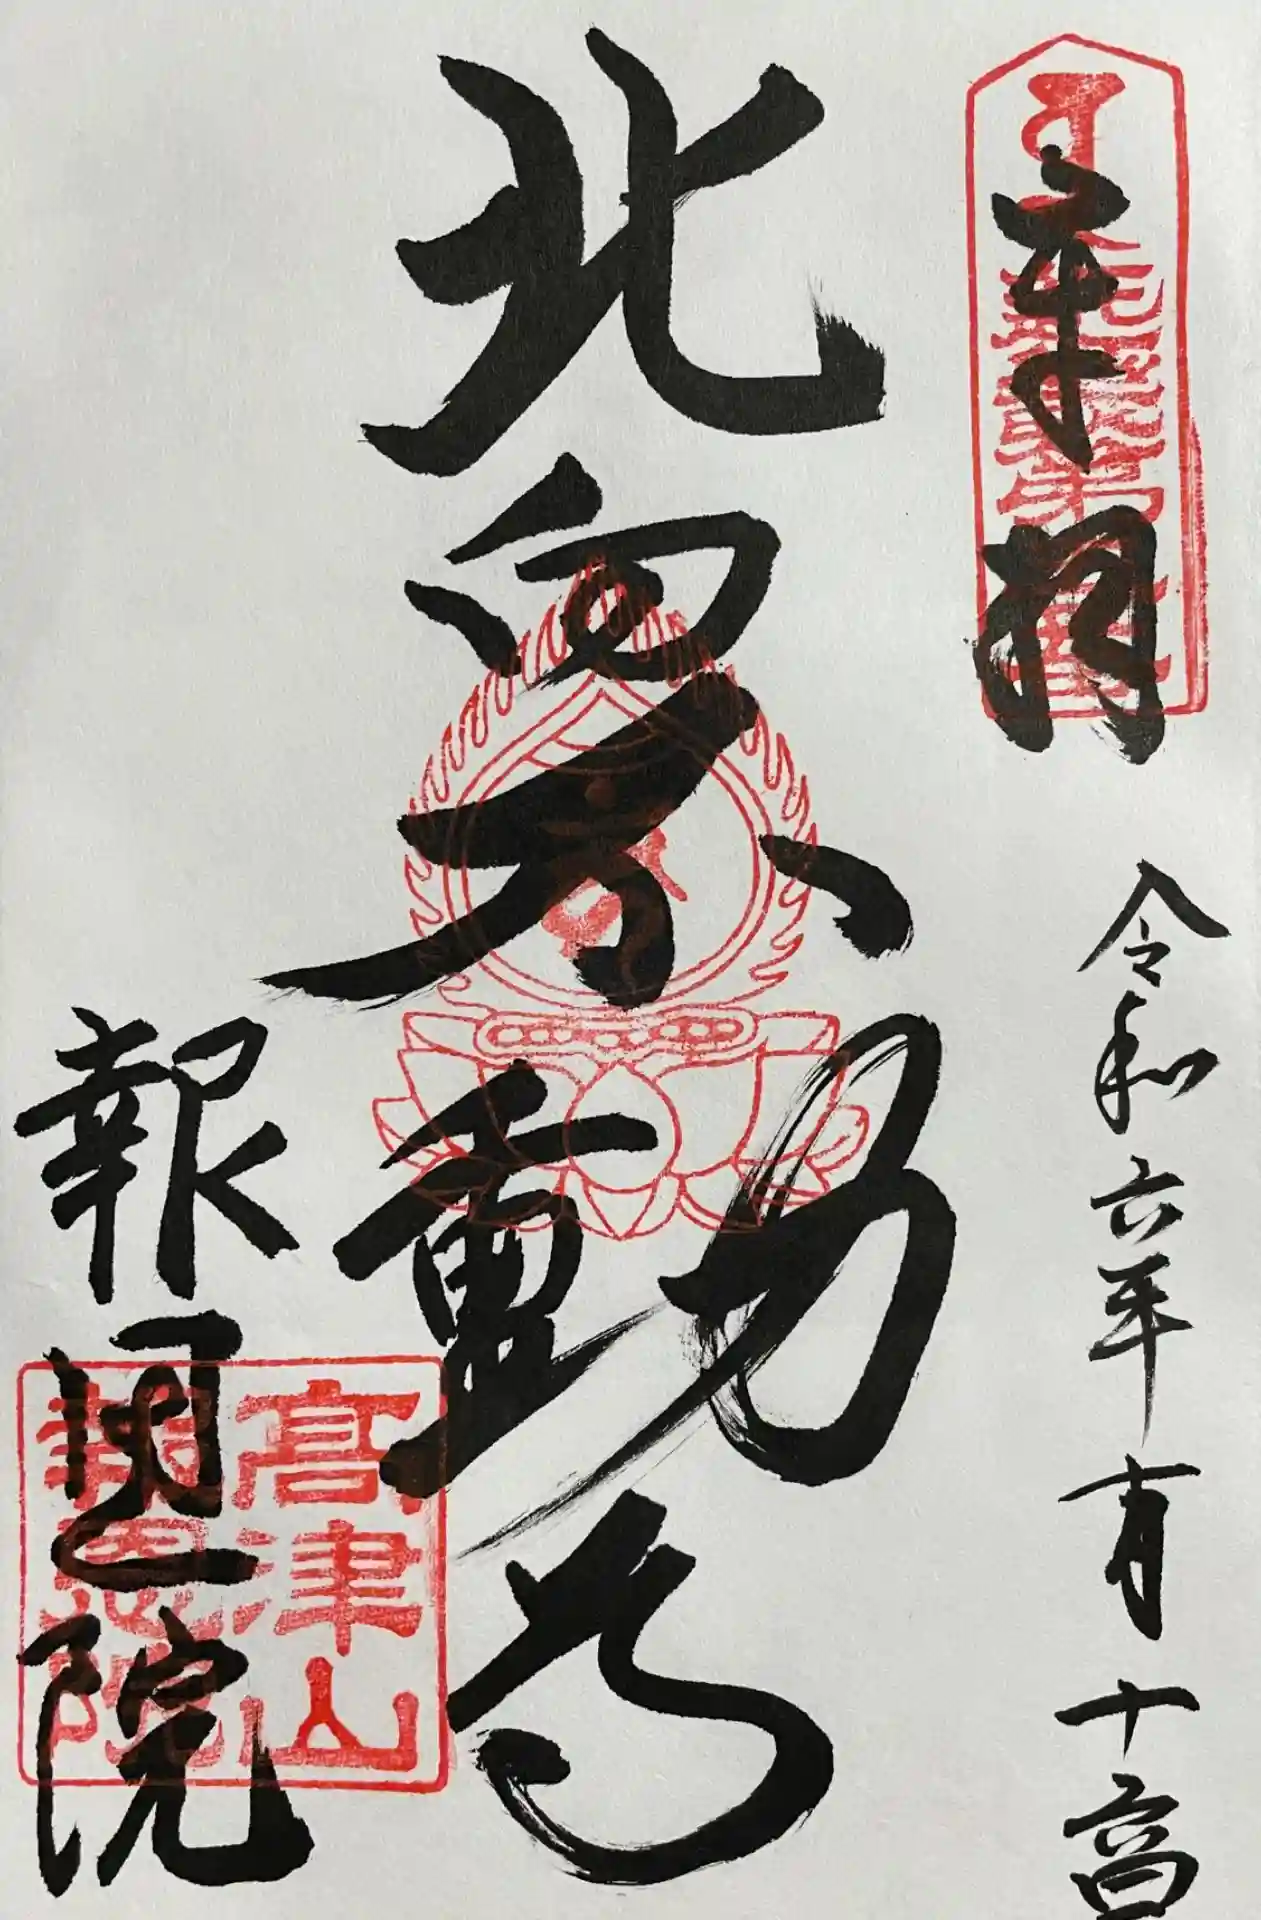 奉拝
令和六年十月十六日
北向不動尊
報恩院
高津山
報恩院